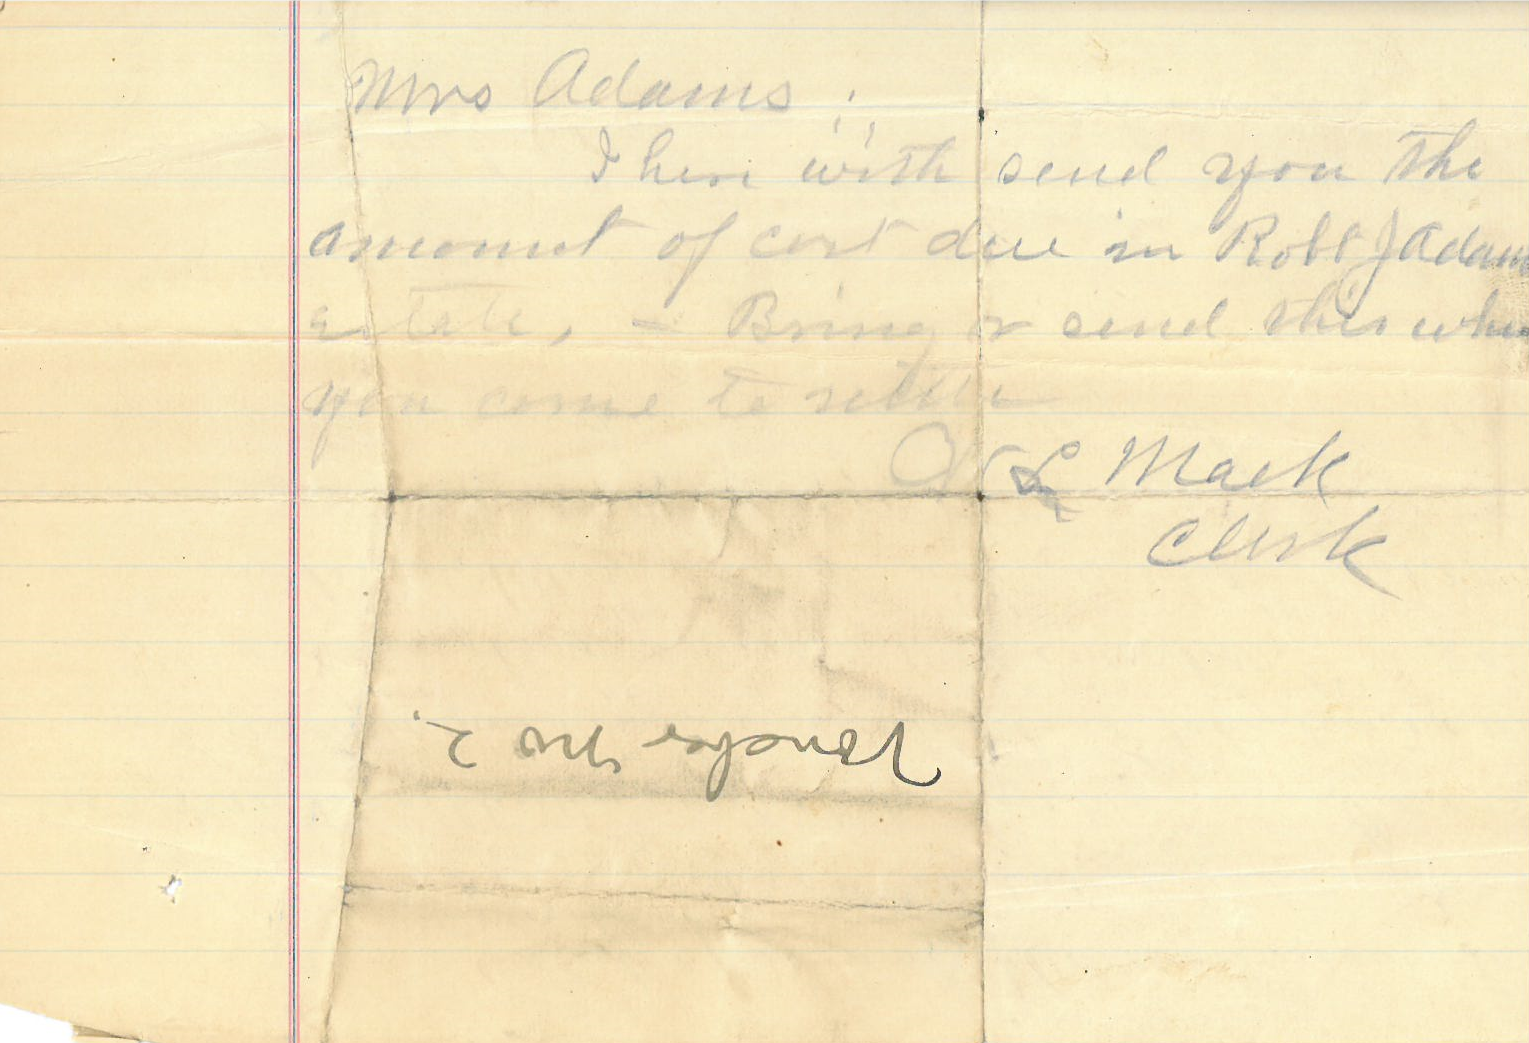 Mrs Adams :
I here with send you the
amount of cost due in Robt J Adams
estate, - Bring or send this when
you come to settle
W L Mack
Clerk
Voucher No 2.